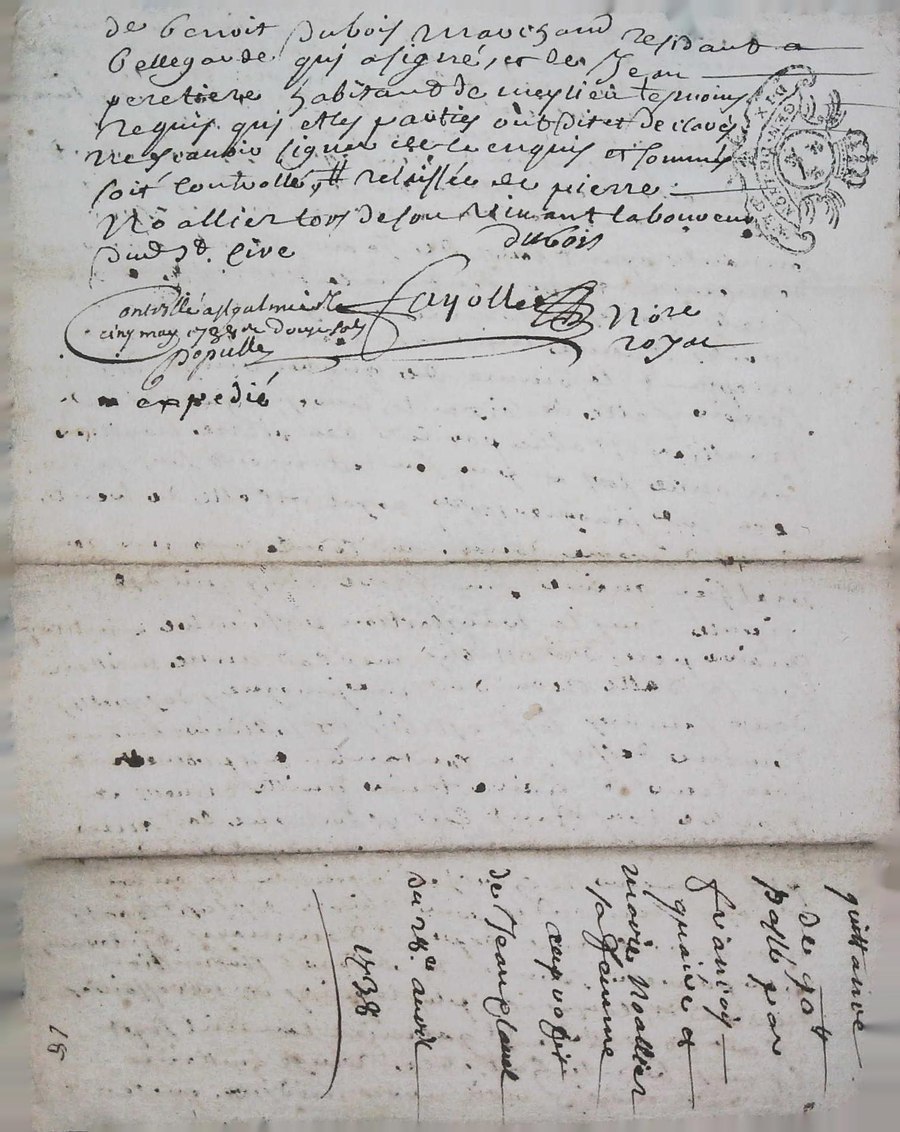 de benoit Dubois marchand residant a
bellegarde quy a signé, et de Jean
peretiere habitant de mesлieu tesmoins
requis quy et les parties ont dit et declaré
ne scavoir signer de ce enquis et sommés
soit controllé, relaissée de pierre
Noallier lors de son vivant laboureur
dud. St. Cire
Dubois
Controllé a St galmier le
cinq may 1738 Rx Douze sols
Populle
Fayolle Nore
royal
expedié
quittance
de 90 tt
passé par
françois
quaire et
marie Noallier
sa femme
au profit
de Jean
du 28e avril
1738
18